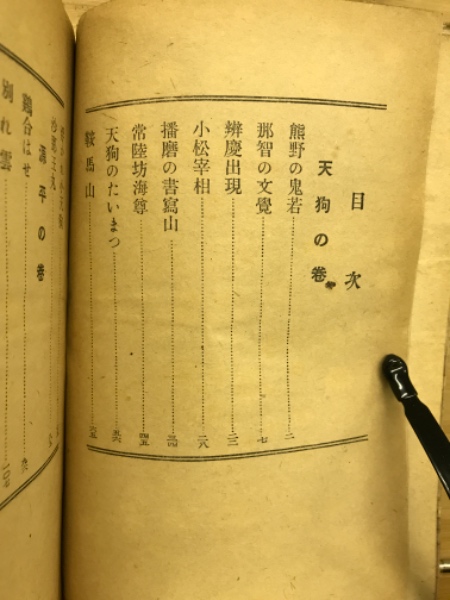 目次
天狗の巻
熊野の鬼若……二
那智の文覺……七
辨慶出現……三
小松宰相……二八
播磨の書寫山
常陸坊海尊……四五
天狗のたいまつ……五六
鞍馬山……六五
源平の巻
鶏合はせ
別れ雲……一〇四